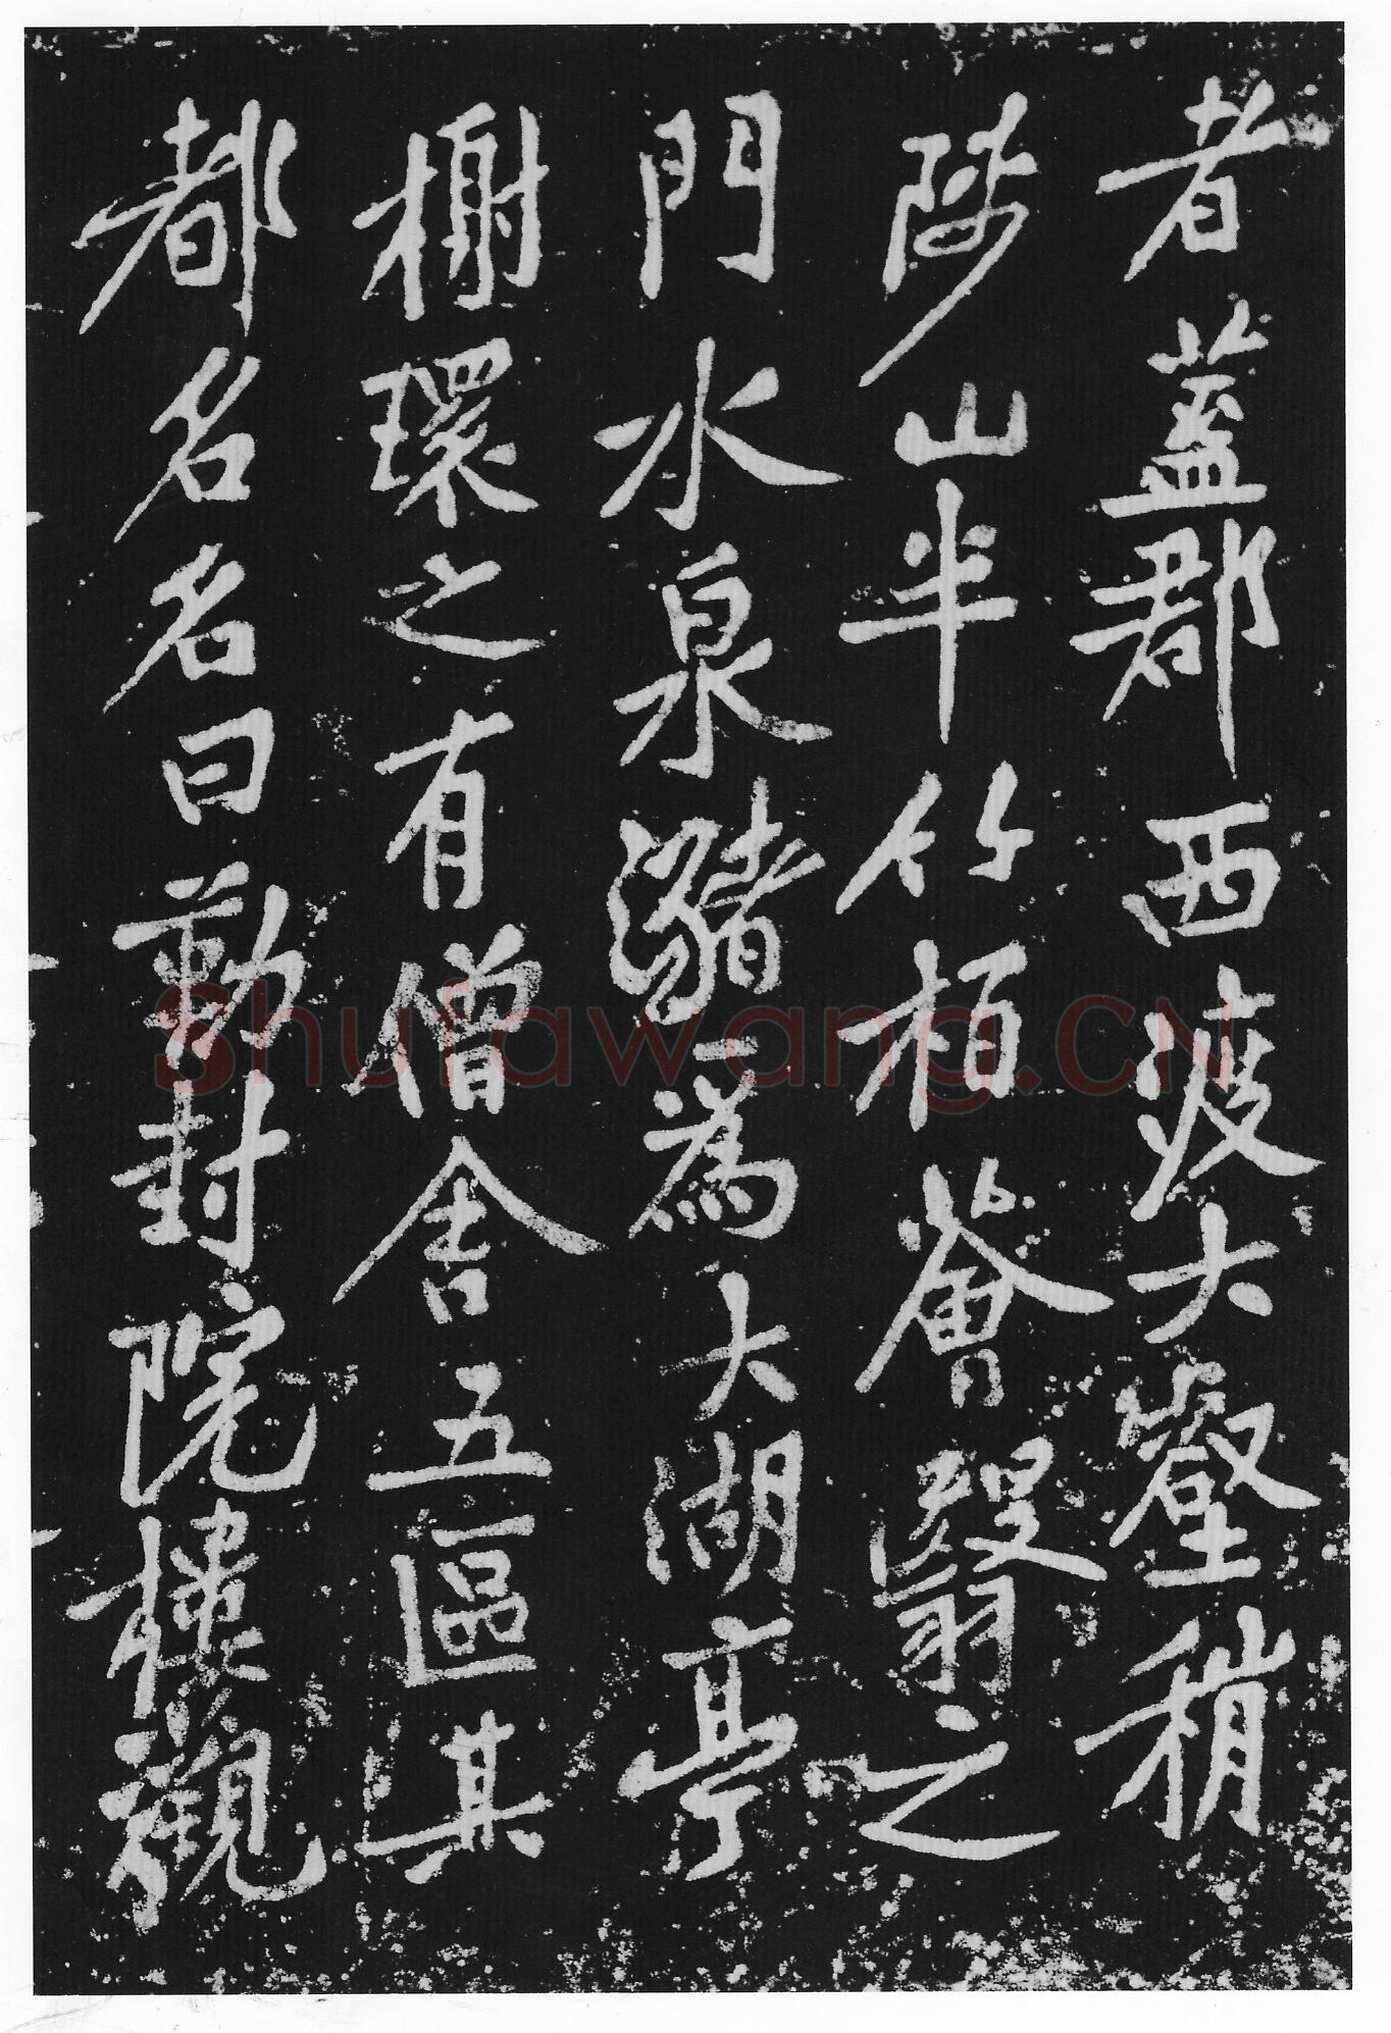 者蓋郡西渡大壑稍
陟山半竹柏薈翳之
門水泉瀦為大湖亭
榭環之有僧舍五區其
都名名曰勅封院樓觀
Shufawang.CN